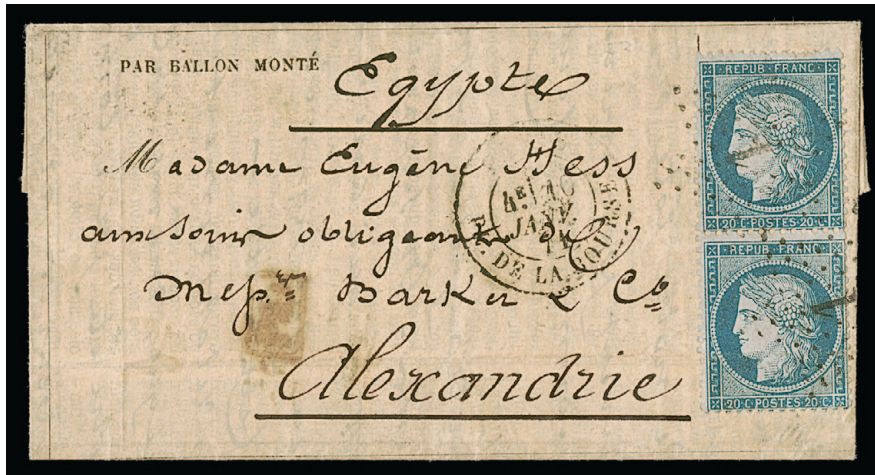 PAR BALLON MONTÉ
Egypte
Madame Eugène Hess
aux soins obligeants de
Mess.rs Barker & Co
Alexandrie
4E
JANV.
71
PL. DE LA BOURSE
REPUB·FRANC·
20 C·POSTES·20 C·
REPUB·FRANC·
20 C·POSTES·20 C·
1
1